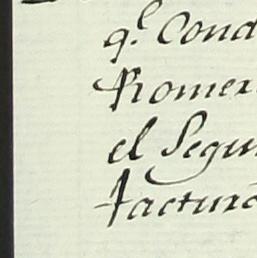 q.^e Cond
Romer
el Segu
factura